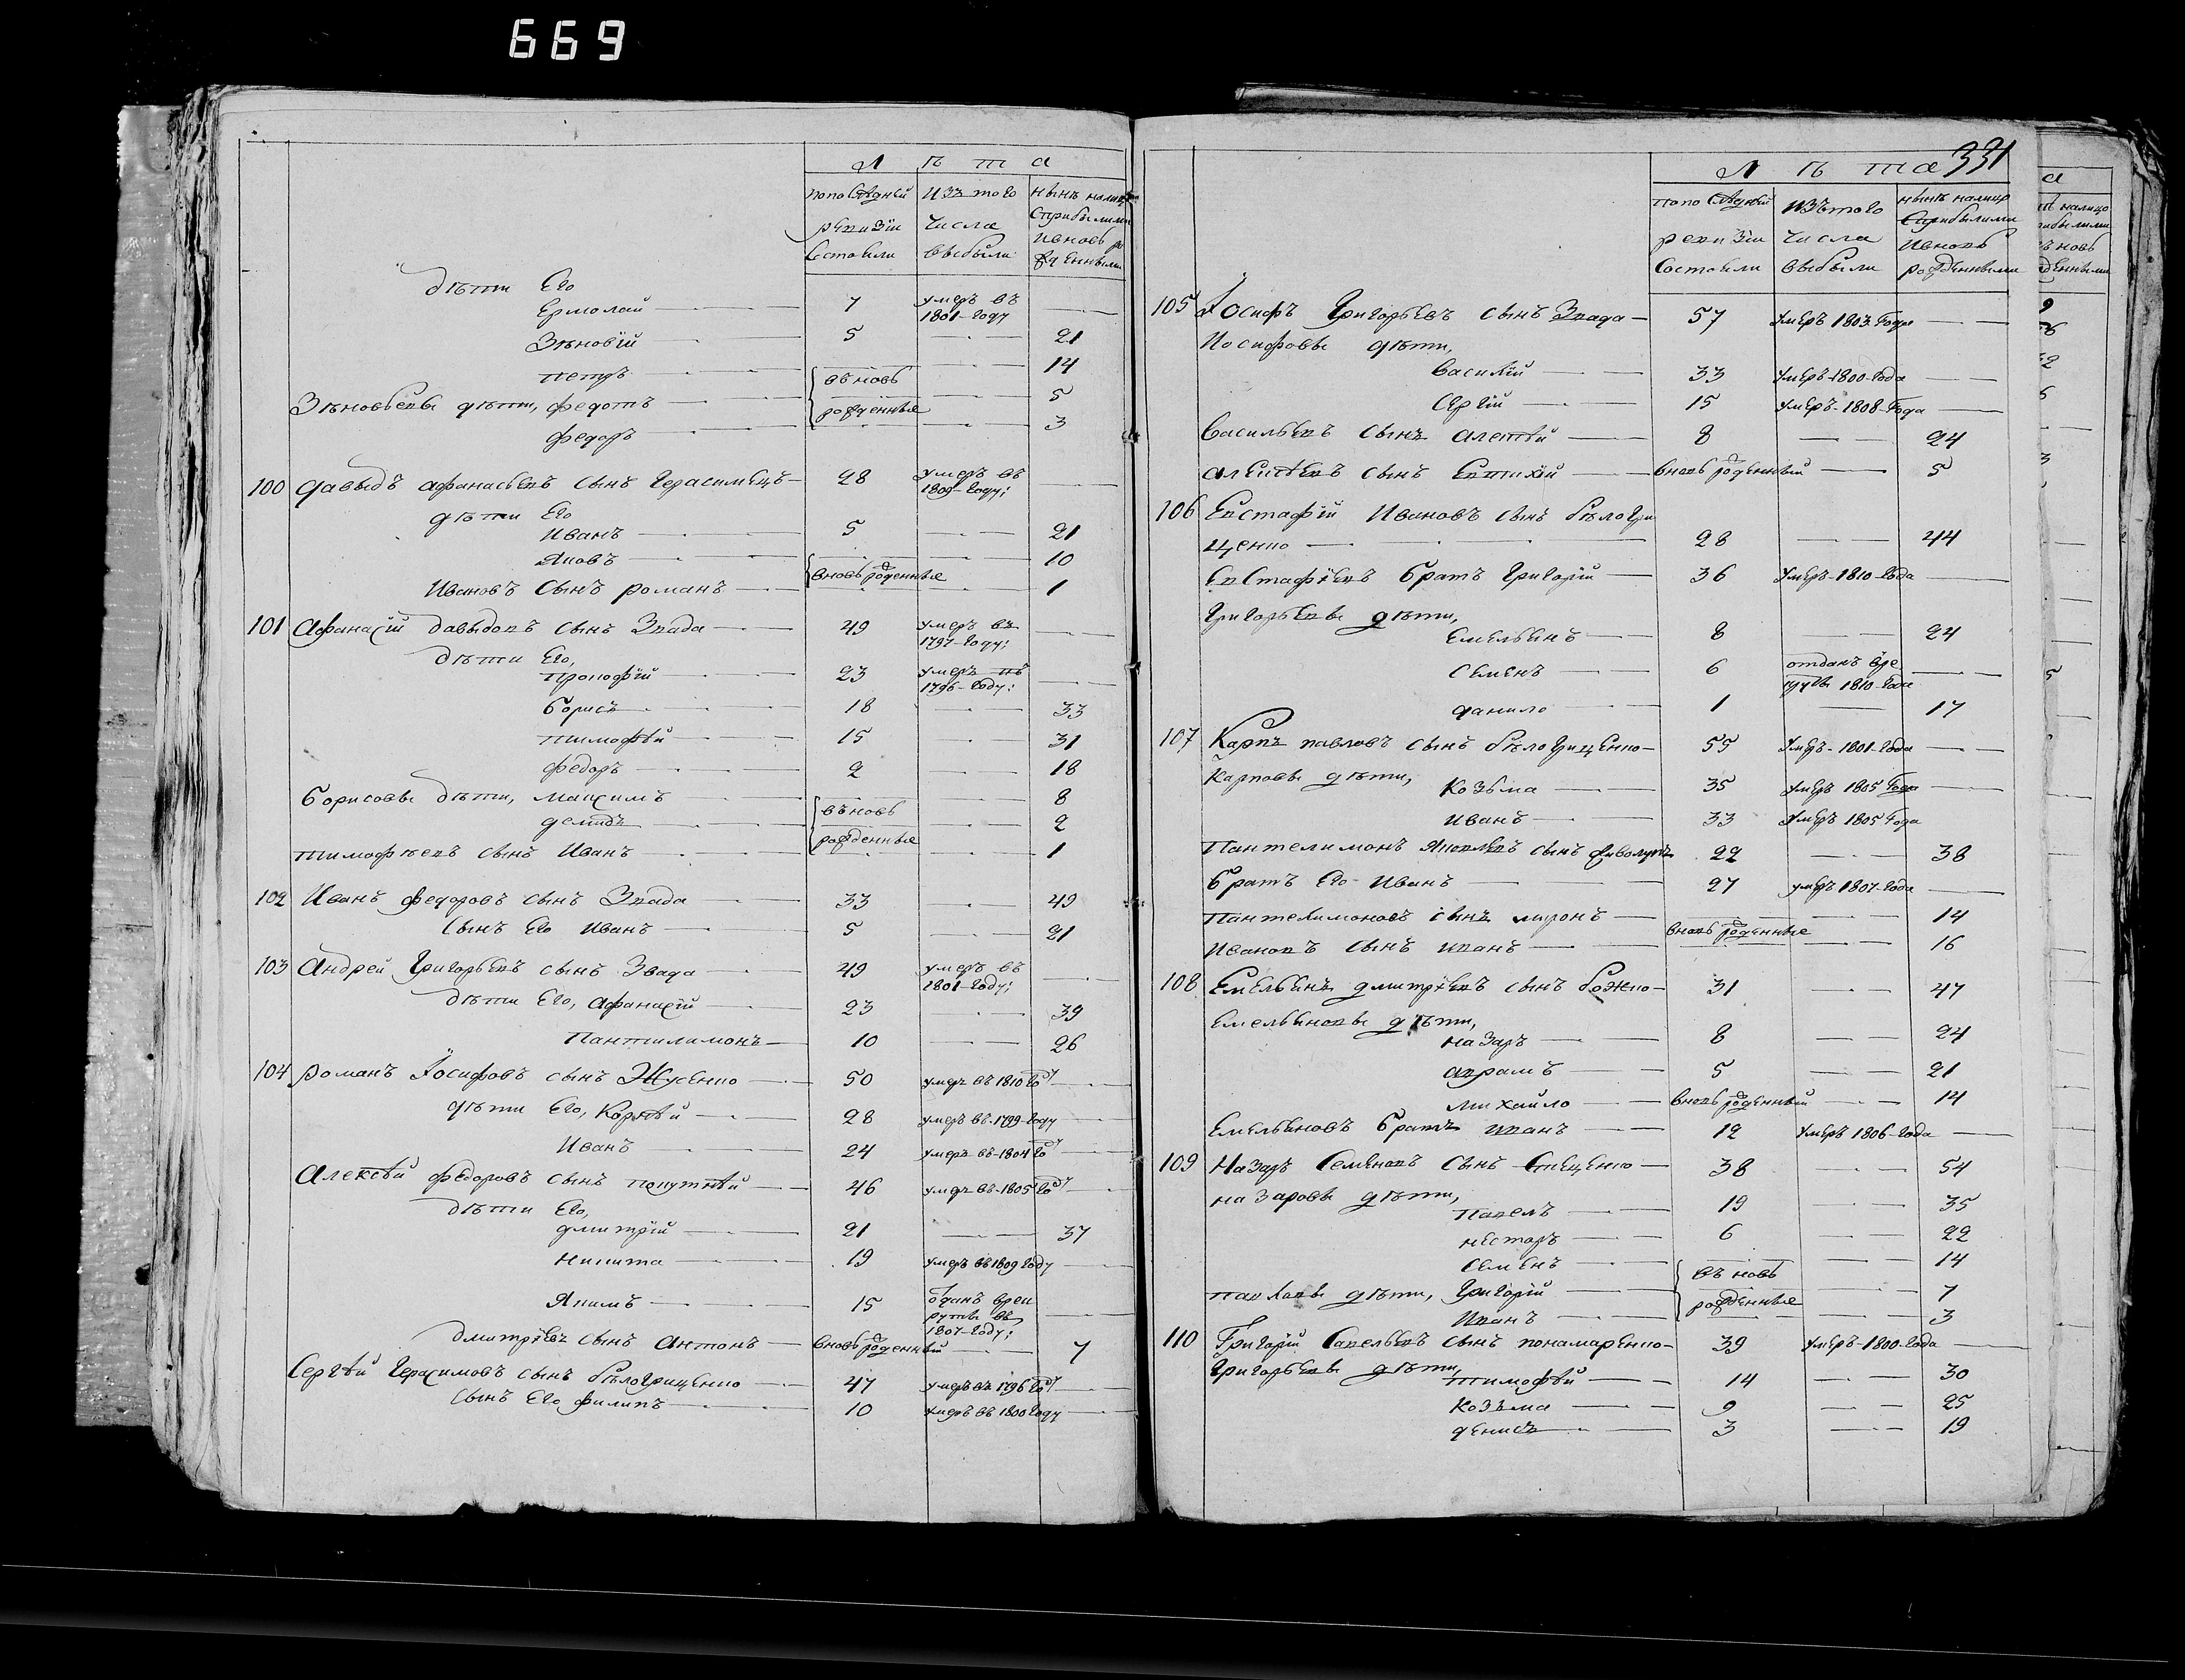 669
Л ѣ т а
по последней
ревизiи
Состояли
Изъ того
числа
выбыли
нынѣ налицо
Сприбылыми
ивновь ро
жденными
дѣти Его
Ермолай 7 умеръ въ
1801-году
Зѣновiй 5 21
петръ 14
въ новь
Зѣновьевы дѣти, федотъ 5
рожденные
федоръ 3
100 давыдъ афанасьевъ сынъ Герасимецъ 28 умеръ въ
1809-году;
дѣти Его
Иванъ 5 21
Яковъ 10
вновь рожденные
Ивановъ Сынъ романъ 1
101 Афанасiй давыдовъ сынъ Звада 49 умеръ въ
1797-году;
дѣти Его,
Прокофiй 23 умеръ въ
1796-году:
борисъ 18 33
тимофѣй 15 31
федоръ 2 18
борисовы дѣти, максимъ 8
въ новь
демидъ 2
рожденные
тимофѣевъ сынъ Иванъ 1
102 Иванъ федоровъ сынъ Звада 33 49
Сынъ Его Иванъ 5 21
103 Андрей Григорьевъ сынъ Звада 49 умеръ въ
1801-году;
дѣти Его, Афанасiй 23 39
Пантилимонъ 10 26
104 романъ Iосифовъ сынъ Жусенко 50 умеръ въ 1810 году
дѣти Его, Корнѣй 28 умеръ въ-1799-году
Иванъ 24 умеръ въ-1804 году
Алексѣй федоровъ сынъ попутнѣй 46 умеръ въ-1805 году
дѣти Его,
дмитрiй 21 37
никита 19 умеръ въ 1809 году
Якимъ 15 отданъ врек
руты въ
1807-году;
дмитрiевъ сынъ антонъ вновь рожденный 7
Сергѣй Герасимовъ сынъ бѣлогрищенко 47 умеръ въ 1796 году
сынъ Его филипъ 10 умеръ въ 1800 году
331
Л ѣ т а
по последней
ревизiи
Состояли
изъ того
числа
выбыли
нынѣ налицо
Сприбылыми
ивновь
рожденными
105 Iосифъ Григорьевъ сынъ Звада 57 умеръ 1803 Года
Иосифовы дѣти,
василiй 33 умеръ-1800-года
Сергiй 15 умеръ-1808-Года
васильевъ сынъ алексѣй 8 24
алексѣевъ сынъ Евтихiй вновь рожденный 5
106 Евстафiй Ивановъ сынъ бѣлогри
щенко 28 44
Евстафiевъ братъ григорiй 36 умеръ-1810-года
Григорьевы дѣти,
Емельянъ 8 24
семенъ 6 отданъ вре
круты 1810-года
данило 1 17
107 Карпъ павловъ сынъ бѣлогрищенко 55 умеръ-1801-года
Карповы дѣти,
Козьма 35 умеръ 1805 Года
иванъ 33 умеръ 1805 Года
Пантелимонъ Яковлевъ сынъ 22 38
братъ Его Иванъ 27 умеръ 1807-года
Пантелимоновъ сынъ миронъ 14
вновь рожденные
Ивановъ сынъ иванъ 16
108 Емельянъ дмитрiевъ сынъ божко 31 47
Емельяновы дѣти,
назаръ 8 24
аврамъ 5 21
михайло вновь рожденный 14
Емельяновъ братъ иванъ 12 умеръ 1806-года
109 Назаръ Семеновъ Сынъ Стеценко 38 54
назаровы дѣти,
павелъ 19 35
несторъ 6 22
семенъ 14
въ новь
павловы дѣти, Григорiй 7
рожденные
иванъ 3
110 Григорiй Савельевъ сынъ понамаренко 39 умеръ-1800-года
Григорьевы дѣти,
тимофѣй 14 30
козьма 9 25
денисъ 3 19